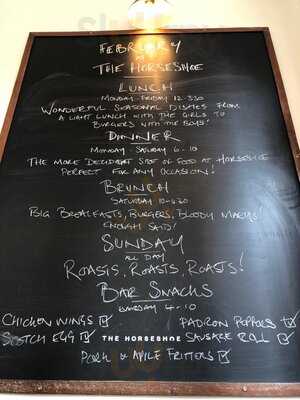 FEBRUARY
THE HORSESHOE
LUNCH
MONDAY - FRIDAY 12-3:30
WONDERFUL SEASONAL DISHES FROM
A LIGHT LUNCH WITH THE GIRLS TO
BURGERS WITH THE BOYS!
DINNER
MONDAY - SATURDAY 6 - 10
THE MORE DECADENT SIDE OF FOOD AT HORSESHOE
PERFECT FOR ANY OCCASION!
BRUNCH
SATURDAY 10-4:30
BIG BREAKFASTS, BURGERS, BLOODY MARYS!
ENOUGH SAID!
SUNDAY
ALL DAY
ROASTS, ROASTS, ROASTS!
BAR SNACKS
4-10
CHICKEN WINGS PADRON PEPPERS
SCOTCH EGG THE HORSESHOE SAUSAGE ROLL
PORK & APPLE FRITTERS